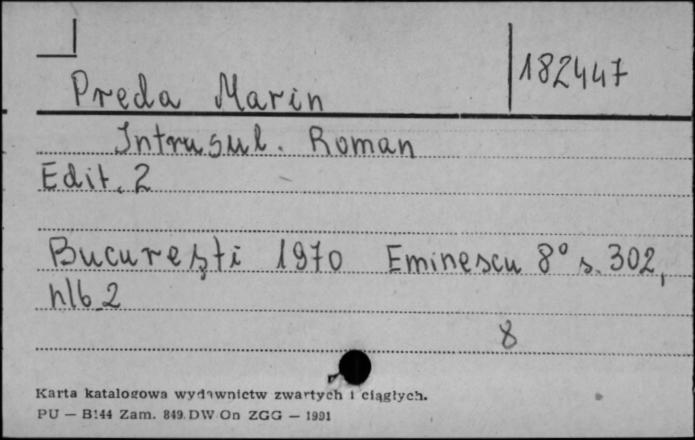 182447
Preda Marin
Intrusul. Roman
Edit. 2
București 1970 Eminescu 8° s. 302,
nlb 2
8
Karta katalogowa wydawnictw zwartych i ciągłych.
PU — B144 Zam. 849. DW On ZGG — 1991